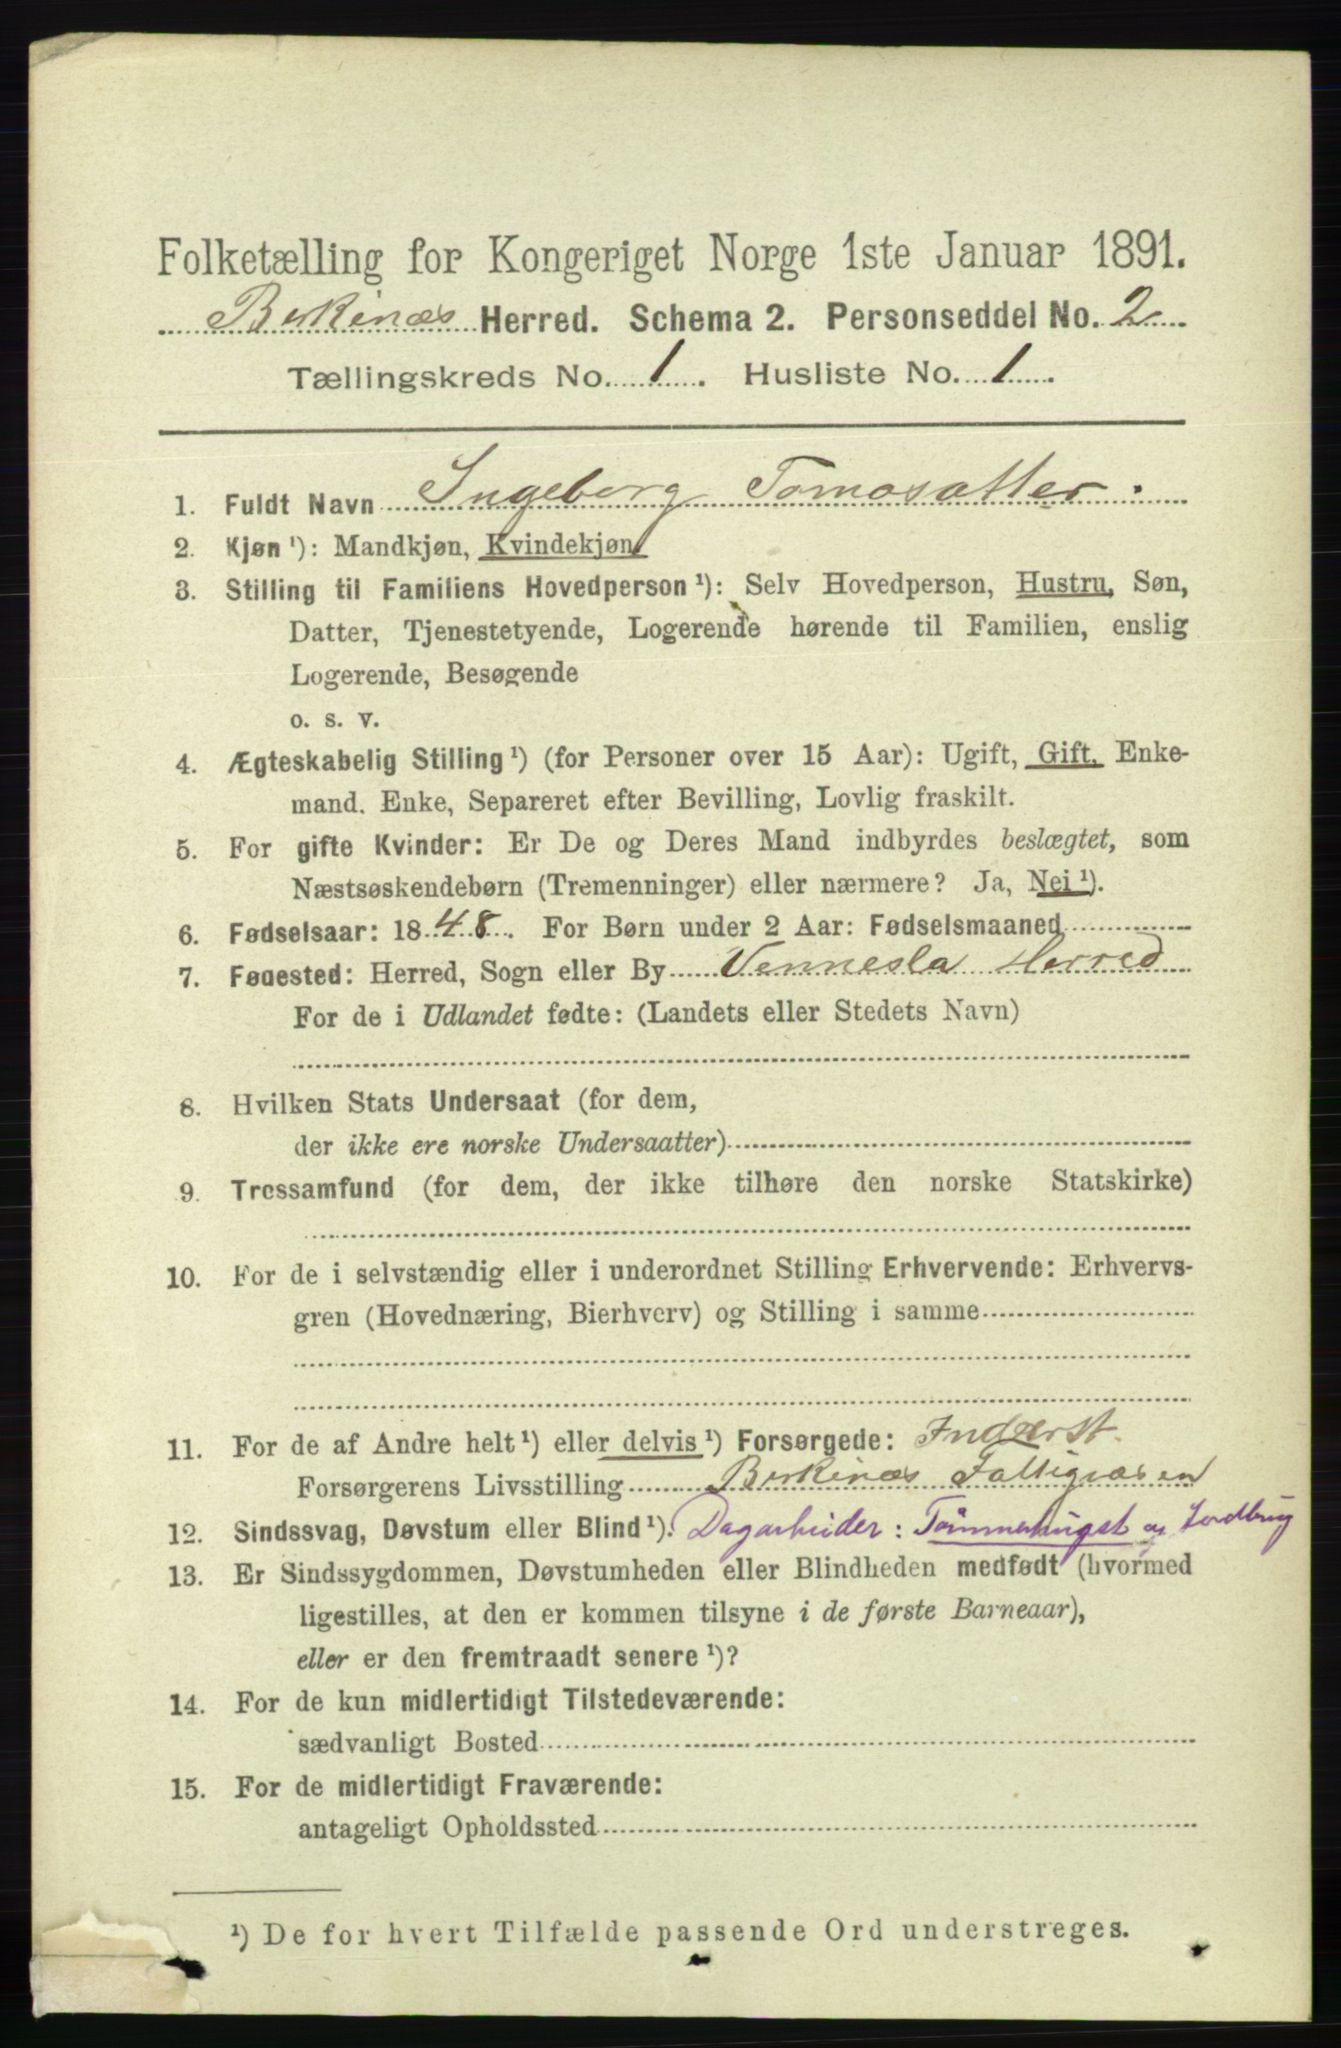 Folketælling for Kongeriget Norge 1ste Januar 1891.
Birkinæs Herred. Schema 2. Personseddel No. 2
Tællingskreds No. 1. Husliste No. 1
1. Fuldt Navn Ingeborg Tomasatter.
2. Kjøn ¹): Mandkjøn, Kvindekjøn
3. Stilling til Familiens Hovedperson ¹): Selv Hovedperson, Hustru, Søn,
Datter, Tjenestetyende, Logerende hørende til Familien, enslig
Logerende, Besøgende
o. s. v.
4. Ægteskabelig Stilling ¹) (for Personer over 15 Aar): Ugift, Gift, Enke-
mand. Enke, Separeret efter Bevilling, Lovlig fraskilt.
5. For gifte Kvinder: Er De og Deres Mand indbyrdes beslægtet, som
Næstsøskendebørn (Tremenninger) eller nærmere? Ja, Nei ¹).
6. Fødselsaar: 1848. For Børn under 2 Aar: Fødselsmaaned
7. Fødested: Herred, Sogn eller By Vennesla Herred
For de i Udlandet fødte: (Landets eller Stedets Navn)
8. Hvilken Stats Undersaat (for dem,
der ikke ere norske Undersaatter)
9. Trossamfund (for dem, der ikke tilhøre den norske Statskirke)
10. For de i selvstændig eller i underordnet Stilling Erhvervende: Erhvervs-
gren (Hovednæring, Bierhverv) og Stilling i samme
11. For de af Andre helt ¹) eller delvis ¹) Forsørgede: Inderst.
Forsørgerens Livsstilling Birkinæs
12. Sindssvag, Døvstum eller Blind ¹). Dagarbeider: Tømmerhugst og Jordbrug
13. Er Sindssygdommen, Døvstumheden eller Blindheden medfødt (hvormed
ligestilles, at den er kommen tilsyne i de første Barneaar),
eller er den fremtraadt senere ¹)?
14. For de kun midlertidigt Tilstedeværende:
sædvanligt Bosted
15. For de midlertidigt Fraværende:
antageligt Opholdssted
¹) De for hvert Tilfælde passende Ord understreges.